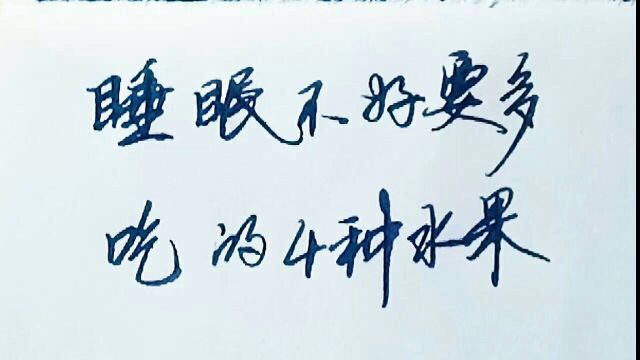 睡眠不好要多
吃的4种水果